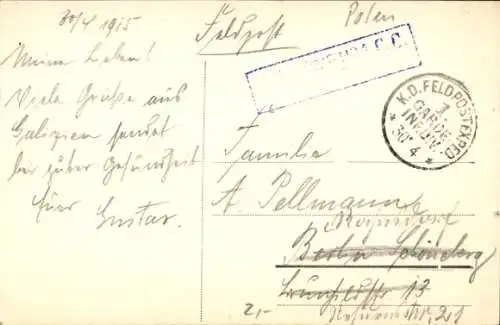 30/4 1915
Meine Lieben!
Viele Grüße aus
Galizien sendet
bei guter Gesundheit
Euer Gustav.
Feldpost
Polen
K.D. FELDPOSTEXPED.
GARDE
30 4
Familie
A. Pellmann
Berlin Schöneberg
13
2,-